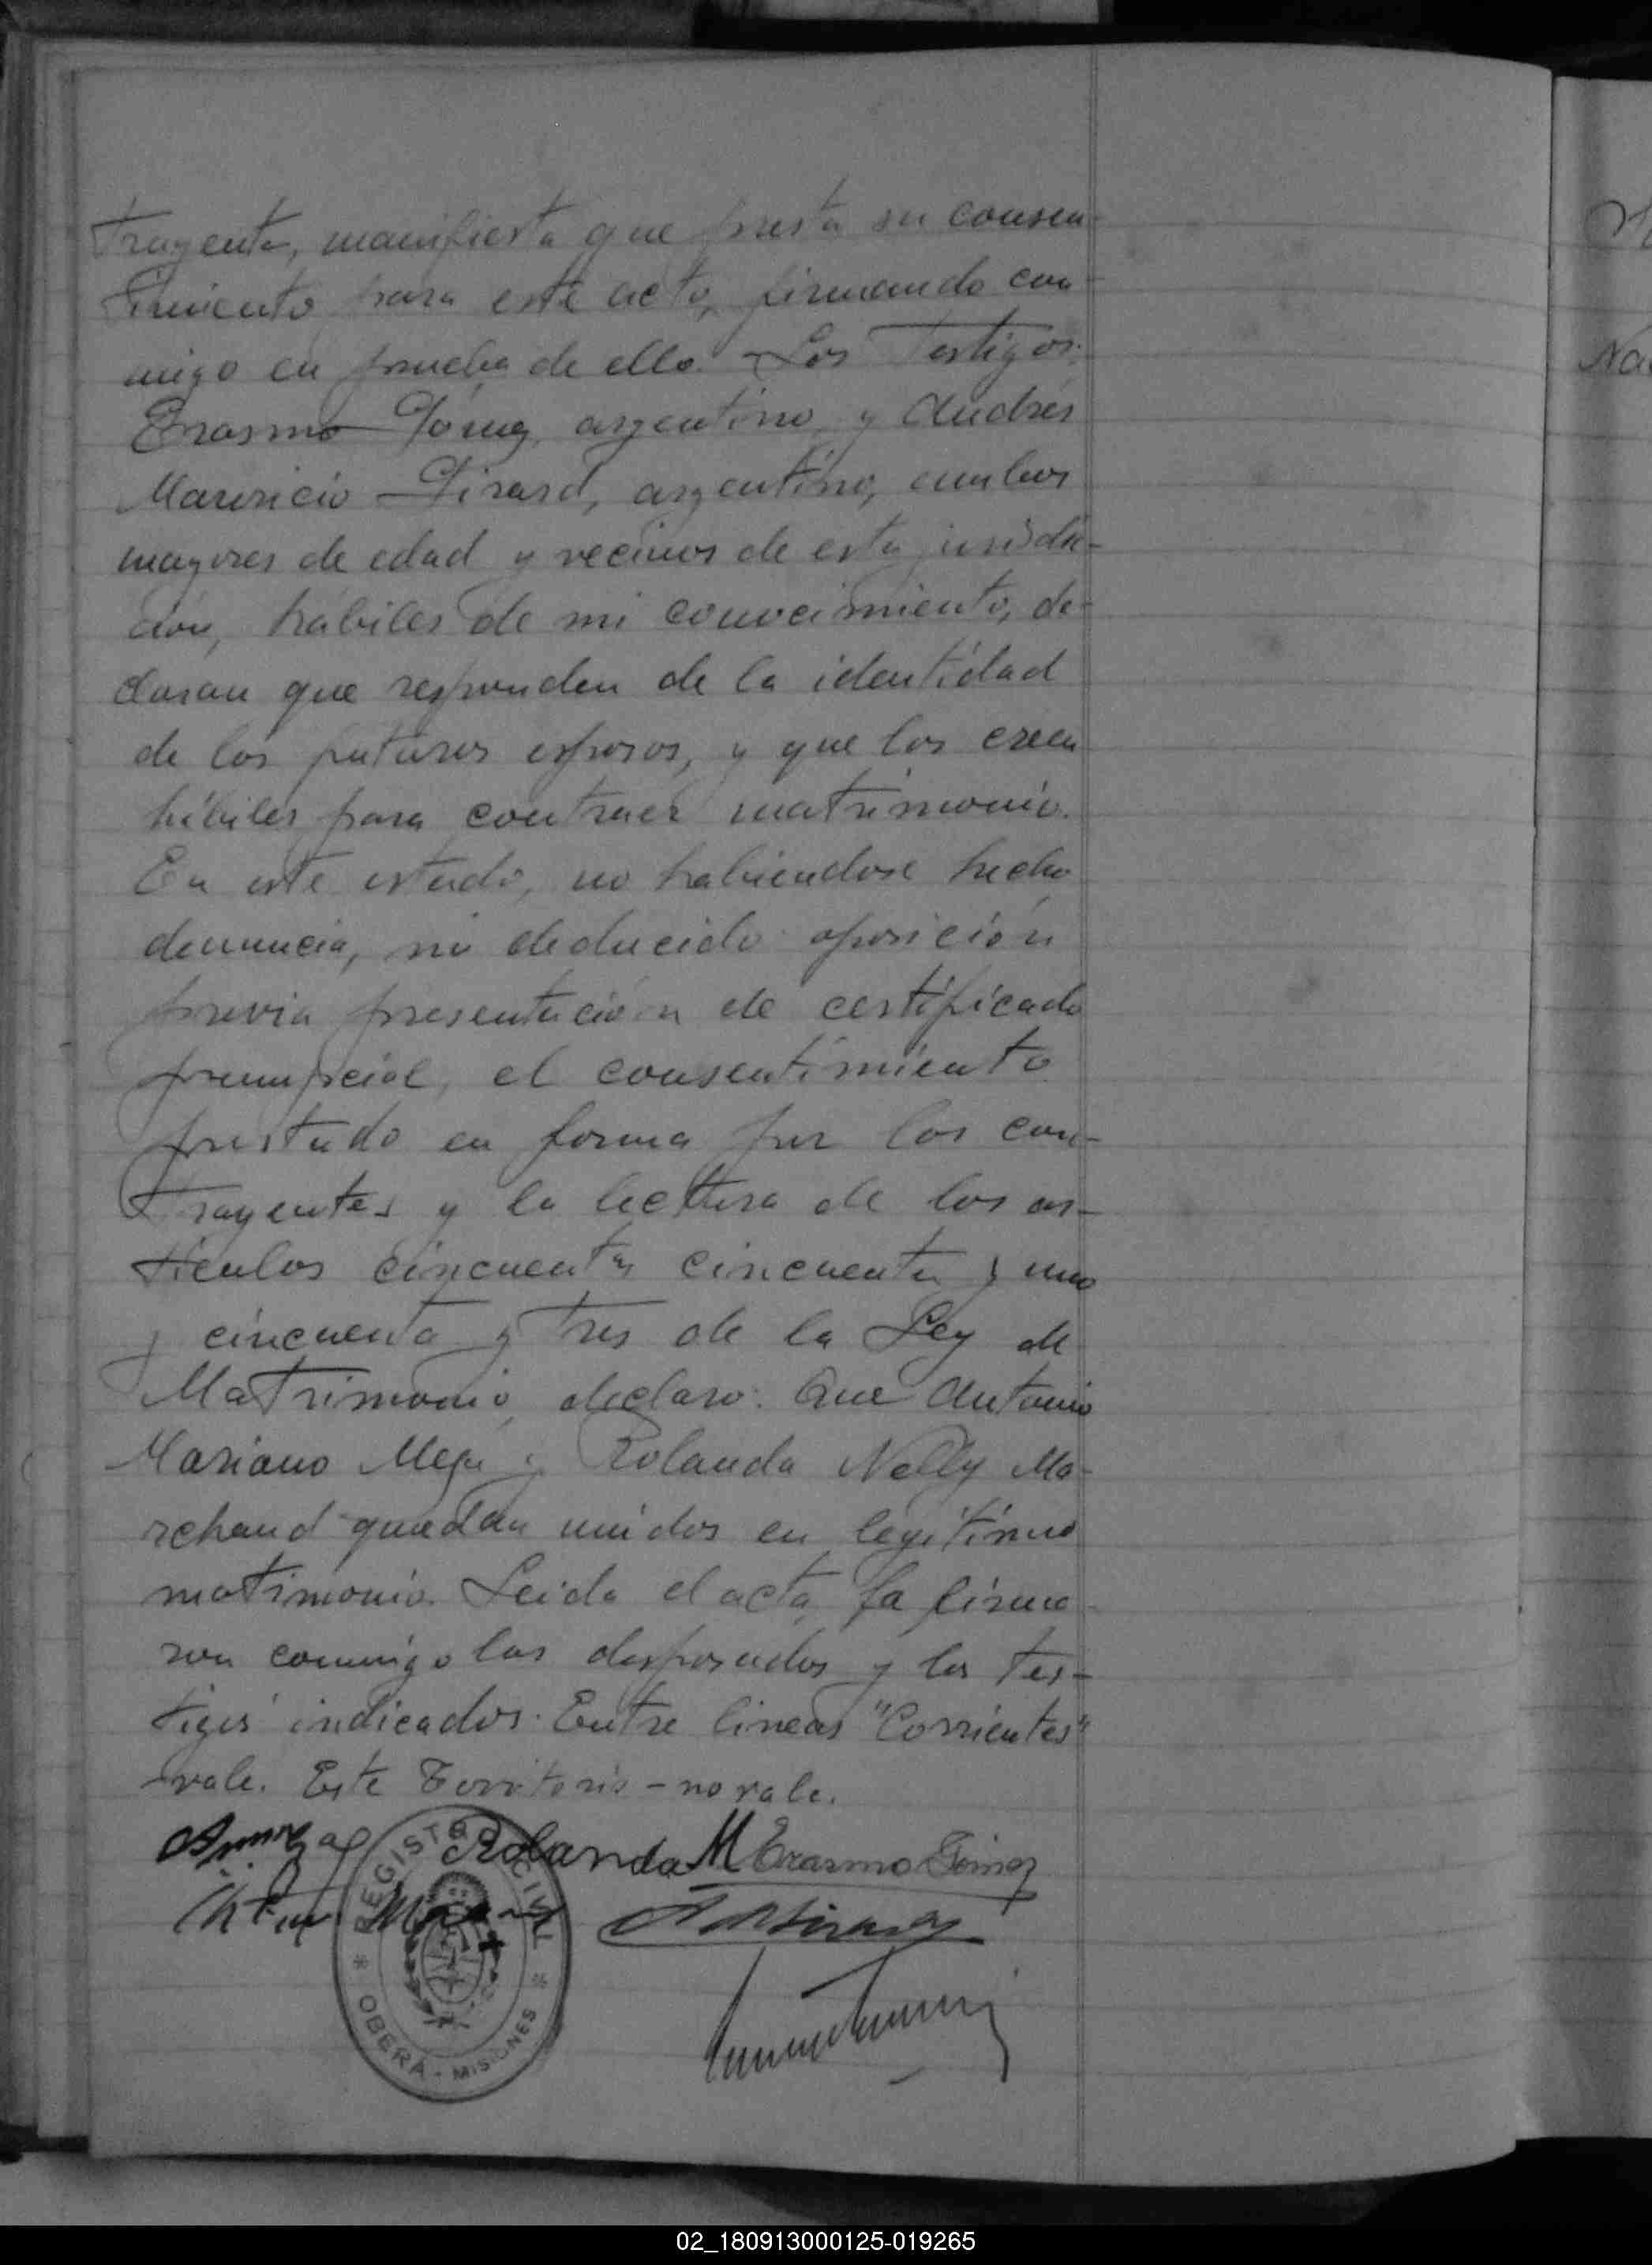 trayente, manifiesta que presta su consen-
timiento para este acto, firmando con-
migo en prueba de ello. Los Testigos:
Erasmo Gómez, argentino, y Andrés
Mauricio Girard, argentino, ambos
mayores de edad y vecinos de esta jurisdic-
ción, hábiles de mi conocimiento, de-
claran que responden de la identidad
de los futuros esposos, y que los creen
hábiles para contraer matrimonio.
En este estado, no habiendose hecho
denuncia, ni deducido oposición
previa presentación de certificado
prenupcial, el consentimiento
prestado en forma por los con-
trayentes y la lectura de los ar-
tículos cincuenta, cincuenta y uno
y cincuenta y tres de la Ley de
Matrimonio, declaro: Que Antonio
Mariano Meza y Rolanda Nelly Ma-
rchand quedan unidos en legítimo
matimonio. Leida el acta, la firma-
ron conmigo los desposados y los tes-
tigos indicados. Entre lineas "Corrientes"
vale. Este Territorio - no vale.
Rolanda M Erasmo Gómez
REGISTRO CIVIL
* OBERÁ - MISIONES *
Na
02_180913000125-019265